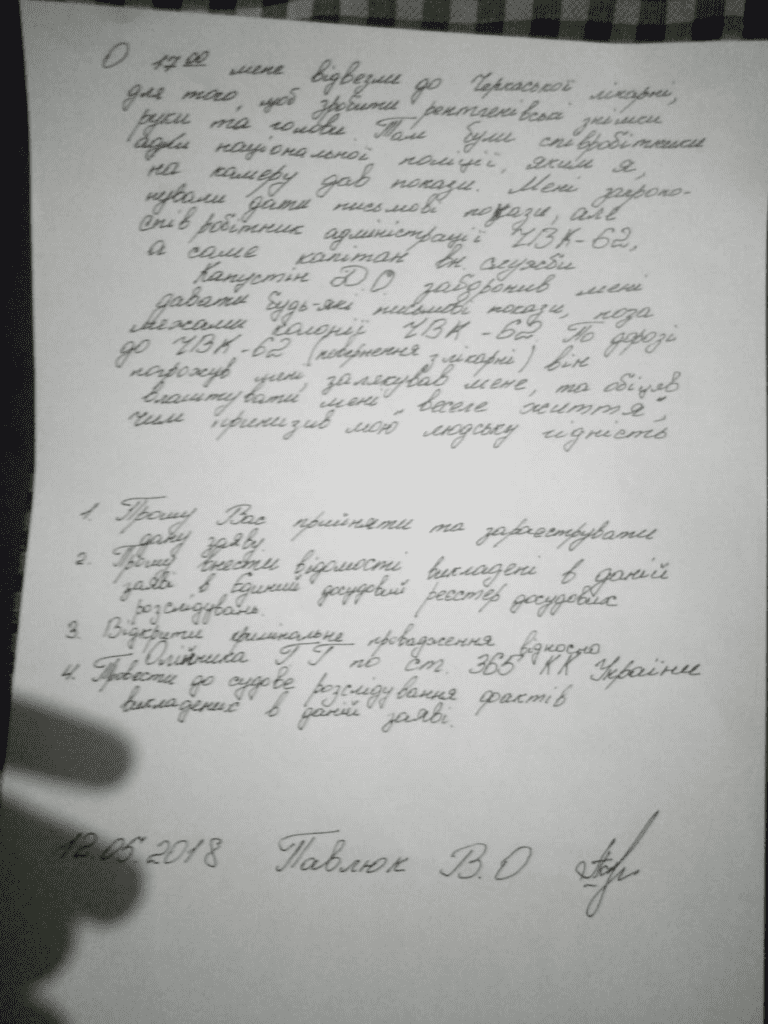 О 17 00 мене відвезли до Черкаської лікарні,
для того, щоб зробити рентгенівські знімки
руки та голови. Там були співробітники
національної поліції, яким я,
на камеру дав покази. Мені запропо-
нували дати письмові покази, але
співробітник адміністрації ЧВК-62,
а саме капітан вн. служби
Капустін Д.О забороняв мені
давати будь-які письмові покази, поза
межами колонії ЧВК-62. По дорозі
до ЧВК-62 (повернення з лікарні) він
погрожув мені, залякував мене, та обіцяв
влаштувати мені „веселе життя",
чим принизив мою людську гідність
1. Прошу Вас прийняти та зареєструвати
дану заяву
2. Прошу внести відомості викладені в даній
заяві в Єдиний досудовий реєстер досудових
розслідувань.
3. Відкрити кримінальне провадження відносно
Олійника Г Г по ст. 365 КК України
4. Провести до судове розслідування фактів
викладених в даній заяві.
12.05.2018 Павлюк В.О